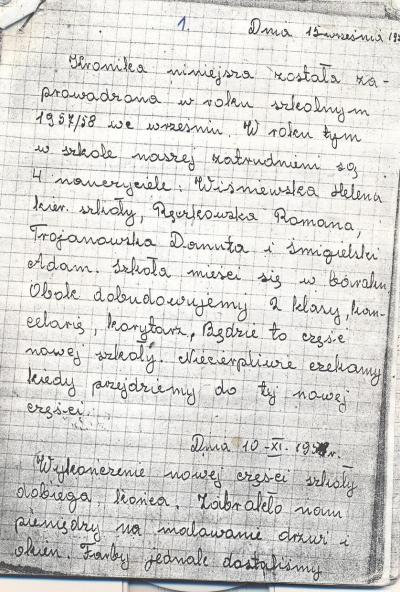 1.
Dnia 15 września 195
Kronika niniejsza została za-
prowadzona w roku szkolnym
1957/58 we wrześniu. W roku tym
w szkole naszej zatrudnieni są
4 nauczyciele: Wiśniewska Helena
kier. szkoły, Ręczkowska Romana,
Trojanowska Danuta i Śmigielski
Adam. Szkoła mieści się w baraku.
Obok dobudowujemy 2 klasy, kan-
celarię, korytarz. Będzie to część
nowej szkoły. Niecierpliwie czekamy
kiedy przejdziemy do tej nowej
części.
Dnia 10-XI. 195 r.
Wykończenie nowej części szkoły
dobiega końca. Zabrakło nam
pieniędzy na malowanie drzwi i
okien. Farby jednak dostaliśmy